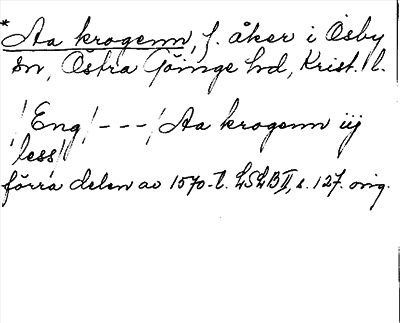 * Aa krogenn, f. åker i Osby
sn, Östra Göinge hd, Krist. l.
/Eng/ - - - / Aa krogenn iij
less/
förra delen av 1570-t. LSLB II, s. 127. orig.